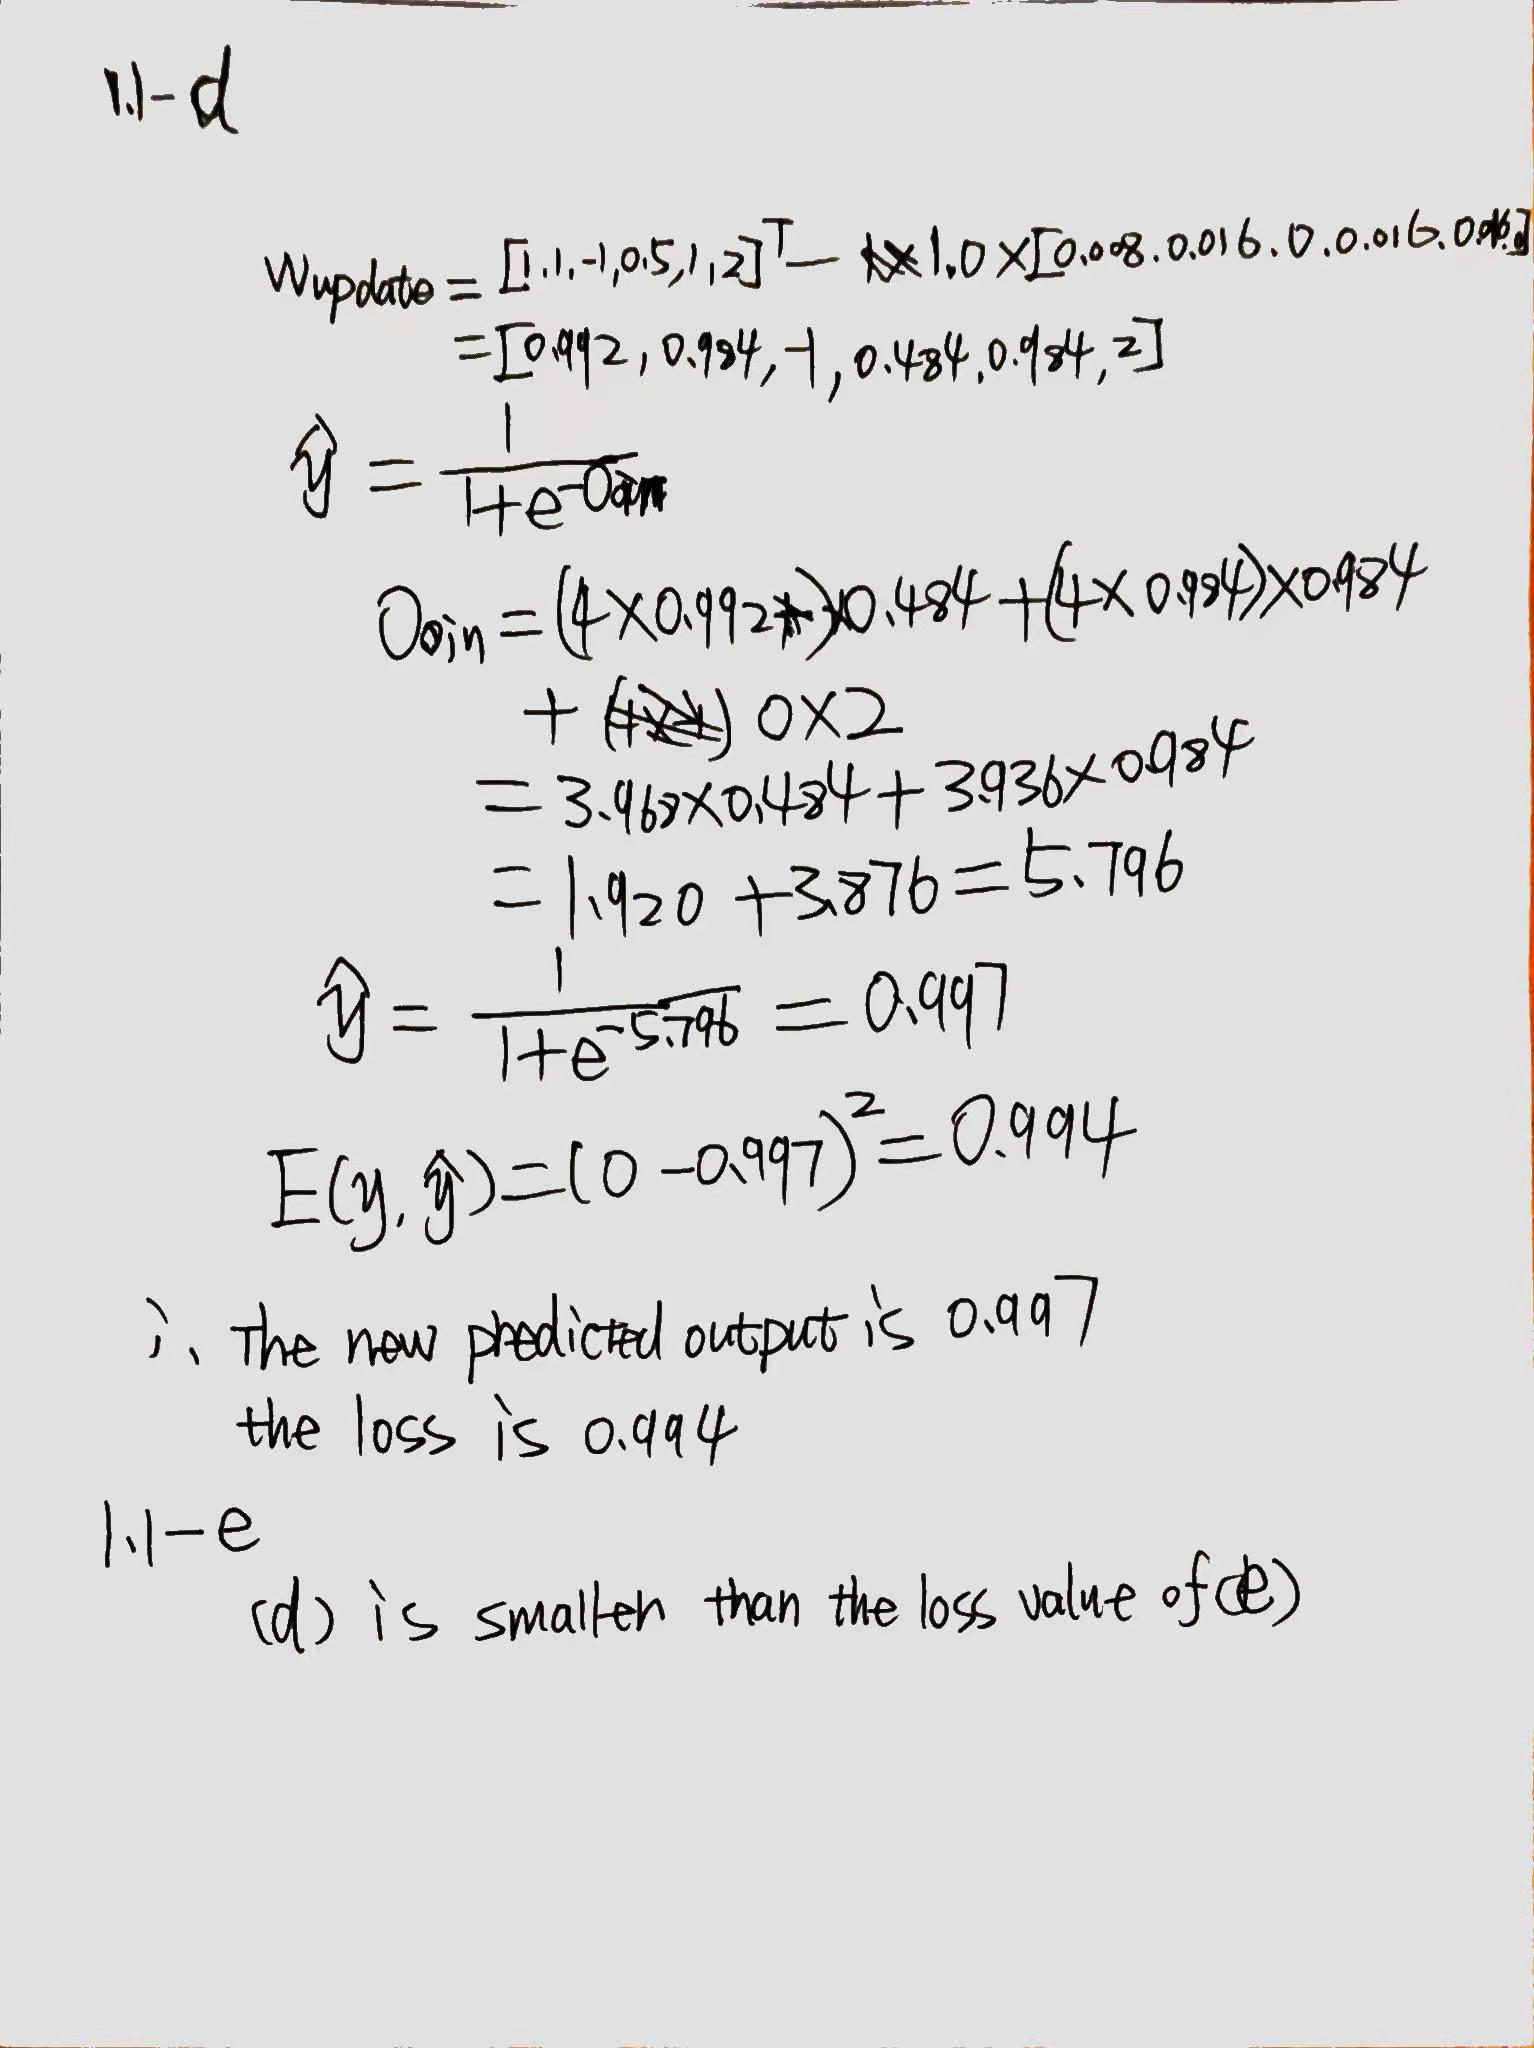 1.1-d
Wupdate = [1.1.-1,0.5,1,2]ᵀ - 1.0 × [0.008.0.016.0.0.016.0.016.0]
= [0.992, 0.984, -1, 0.484, 0.984, 2]
ŷ = 1/(1+e^-Ooin)
Ooin = (4×0.992)×0.484 + (4×0.984)×0.984
+ 0×2
= 3.968×0.484 + 3.936×0.984
= 1.920 + 3.876 = 5.796
ŷ = 1/(1+e^-5.796) = 0.997
E(y, ŷ) = (0 - 0.997)² = 0.994
∴ The new predicted output is 0.997
the loss is 0.994
1.1-e
(d) is smaller than the loss value of